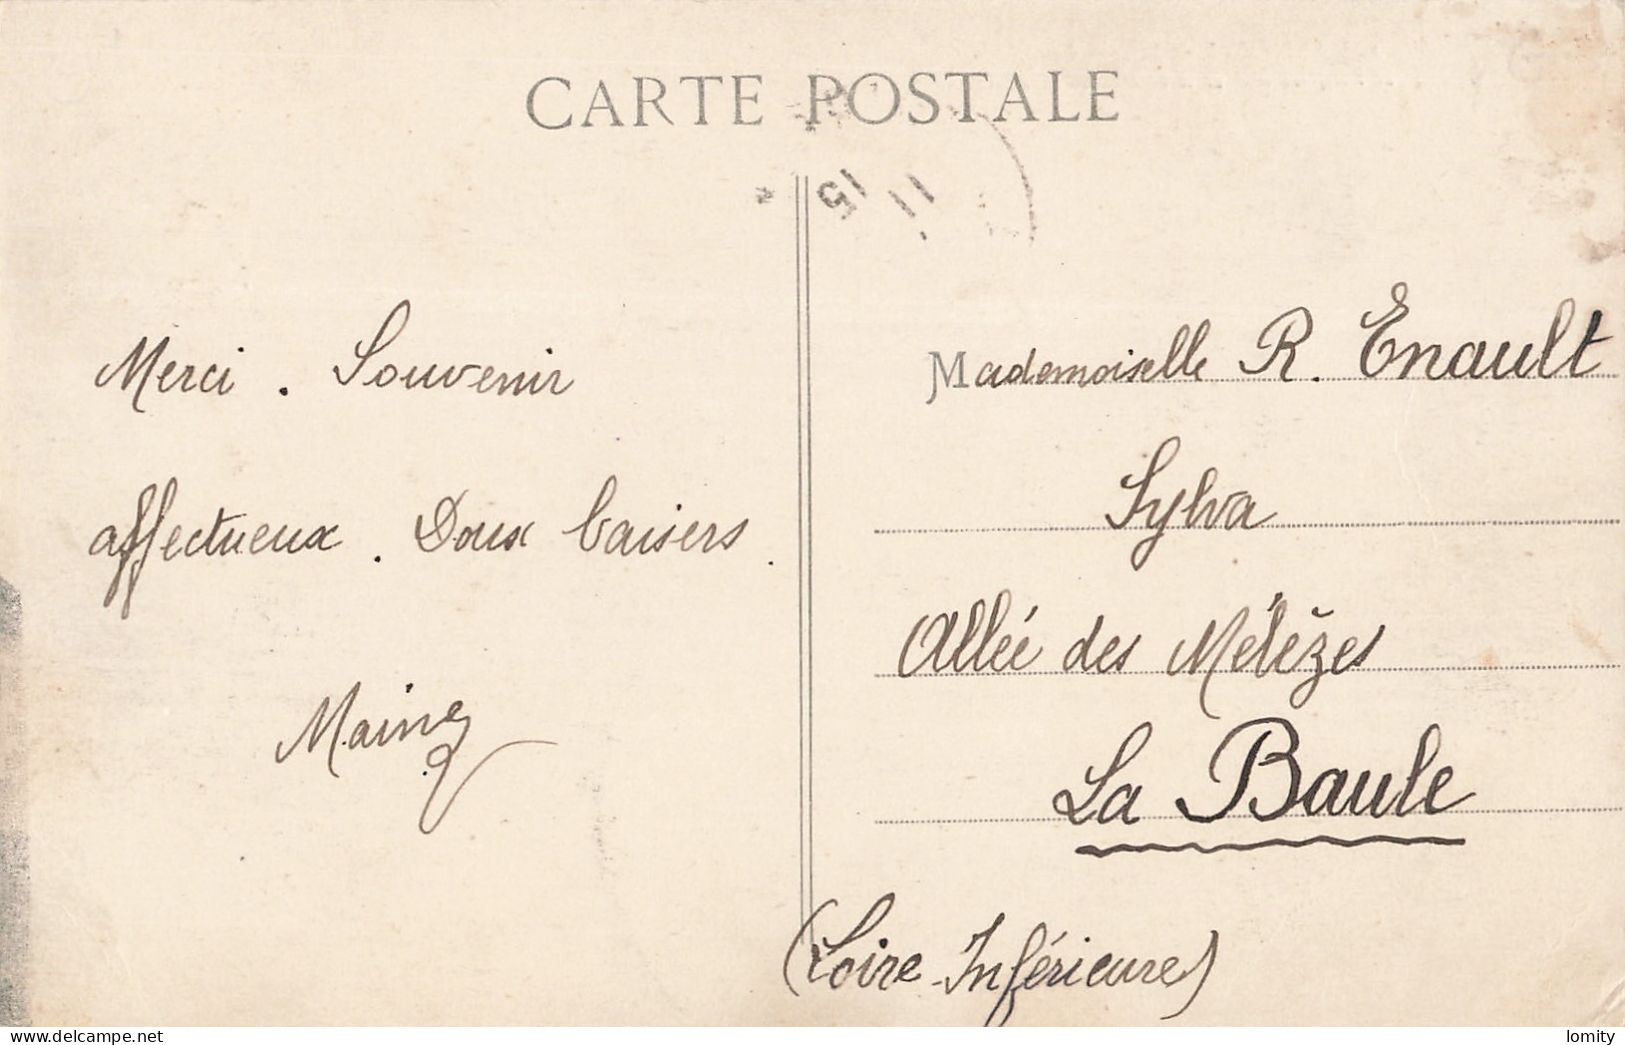 CARTE POSTALE
15
11
Merci. Souvenir
affectueux. Doux baisers.
Mademoiselle R. Enault
Sylva
Allée des Mélèzes
La Baule
(Loire Inférieure)
delcampe.net
lomity